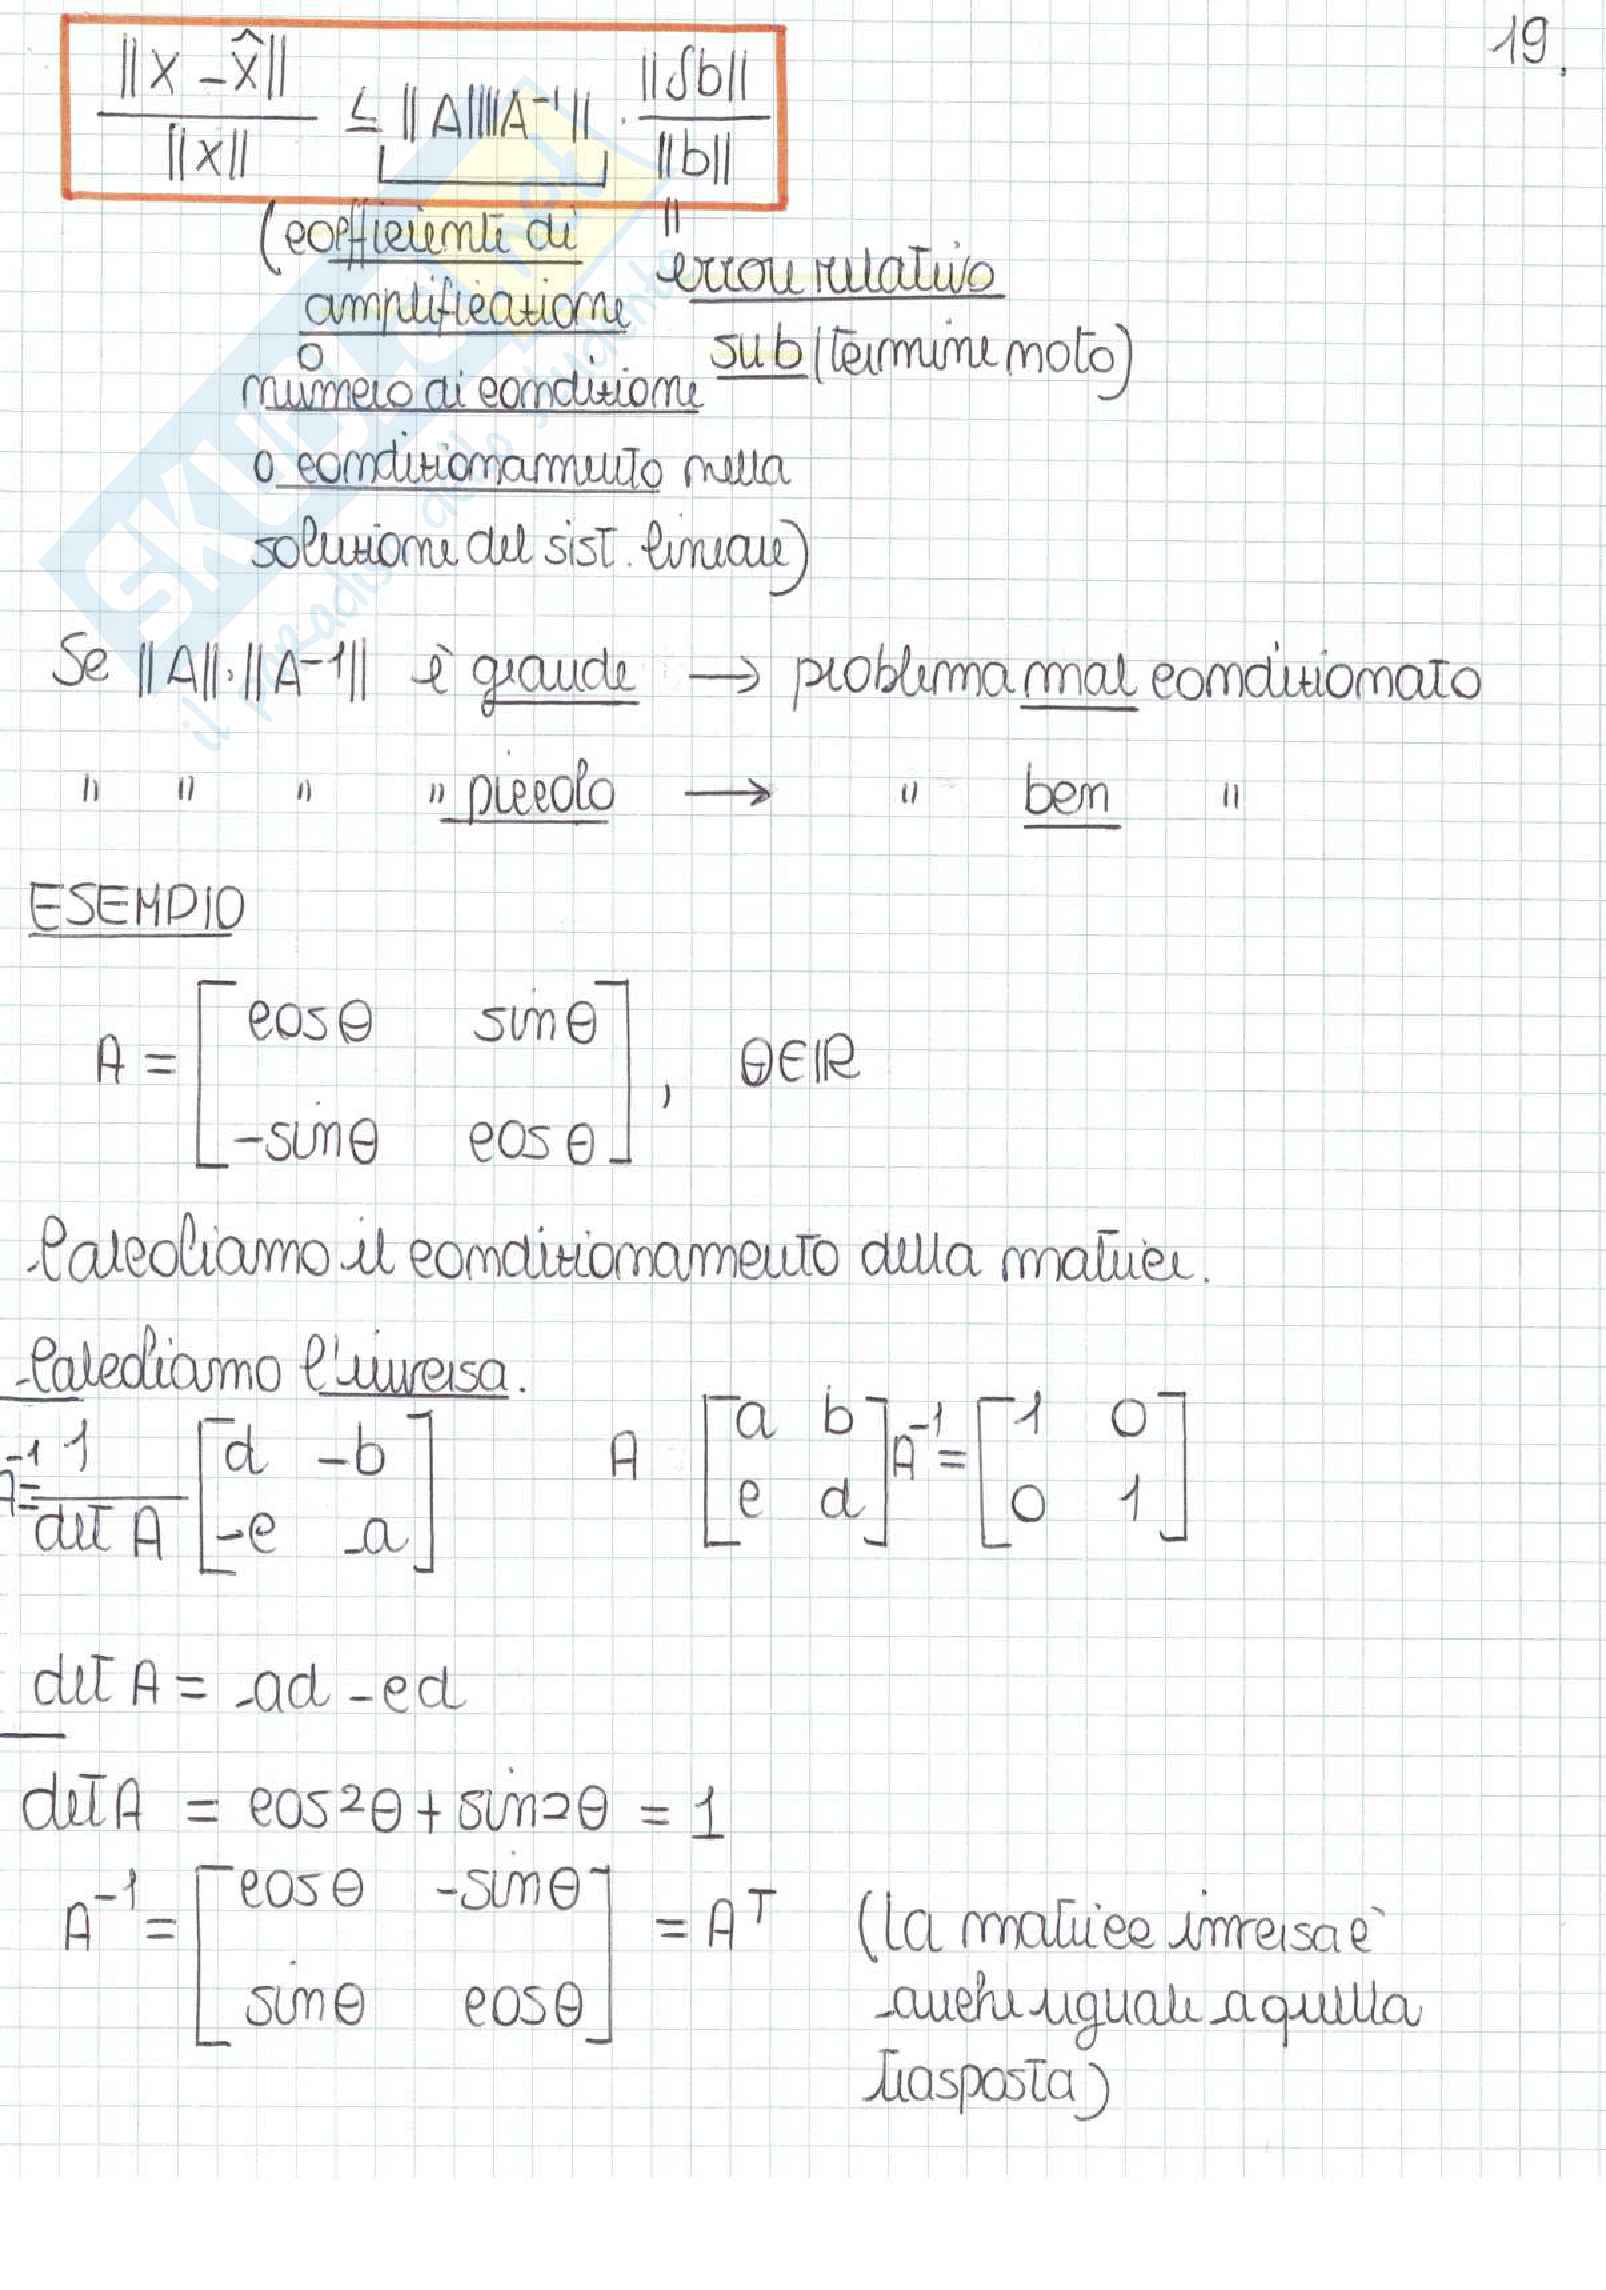 19.
‖x - x̂‖ / ‖x‖ ≤ ‖A‖‖A⁻¹‖ · ‖δb‖ / ‖b‖
(coefficiente di
amplificazione
o
numero di condizione
o condizionamento nella
soluzione del sist. lineare)
"
errore relativo
sub (termine noto)
Se ‖A‖·‖A-1‖ è grande → problema mal condizionato
" " " " piccolo → " ben "
ESEMPIO
A = [ cosθ sinθ
-sinθ cosθ ] , θ∈ℝ
Calcoliamo il condizionamento della matrice.
Calcoliamo l'inversa.
A⁻¹ = 1 / det A [ d -b
-c a ]
A [ a b
c d ] A⁻¹ = [ 1 0
0 1 ]
det A = ad - cd
det A = cos2θ + sin2θ = 1
A⁻¹ = [ cosθ -sinθ
sinθ cosθ ] = Aᵀ
(la matrice inversa è
anche uguale a quella
trasposta)
SKUOLA.net
il paradiso dello studente